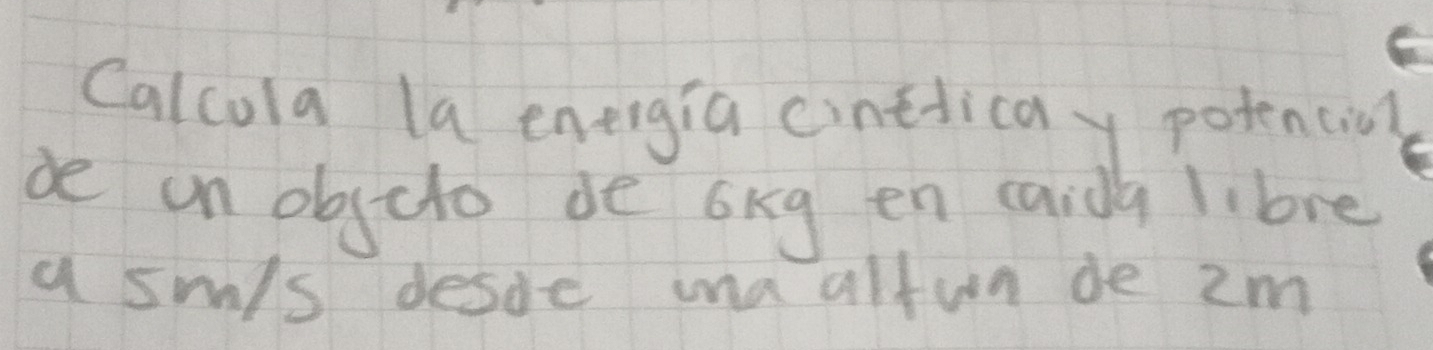 Calcula la energía cinética y potencial
de un objeto de 6kg en caida libre
a 5m/s desde una altura de 2m